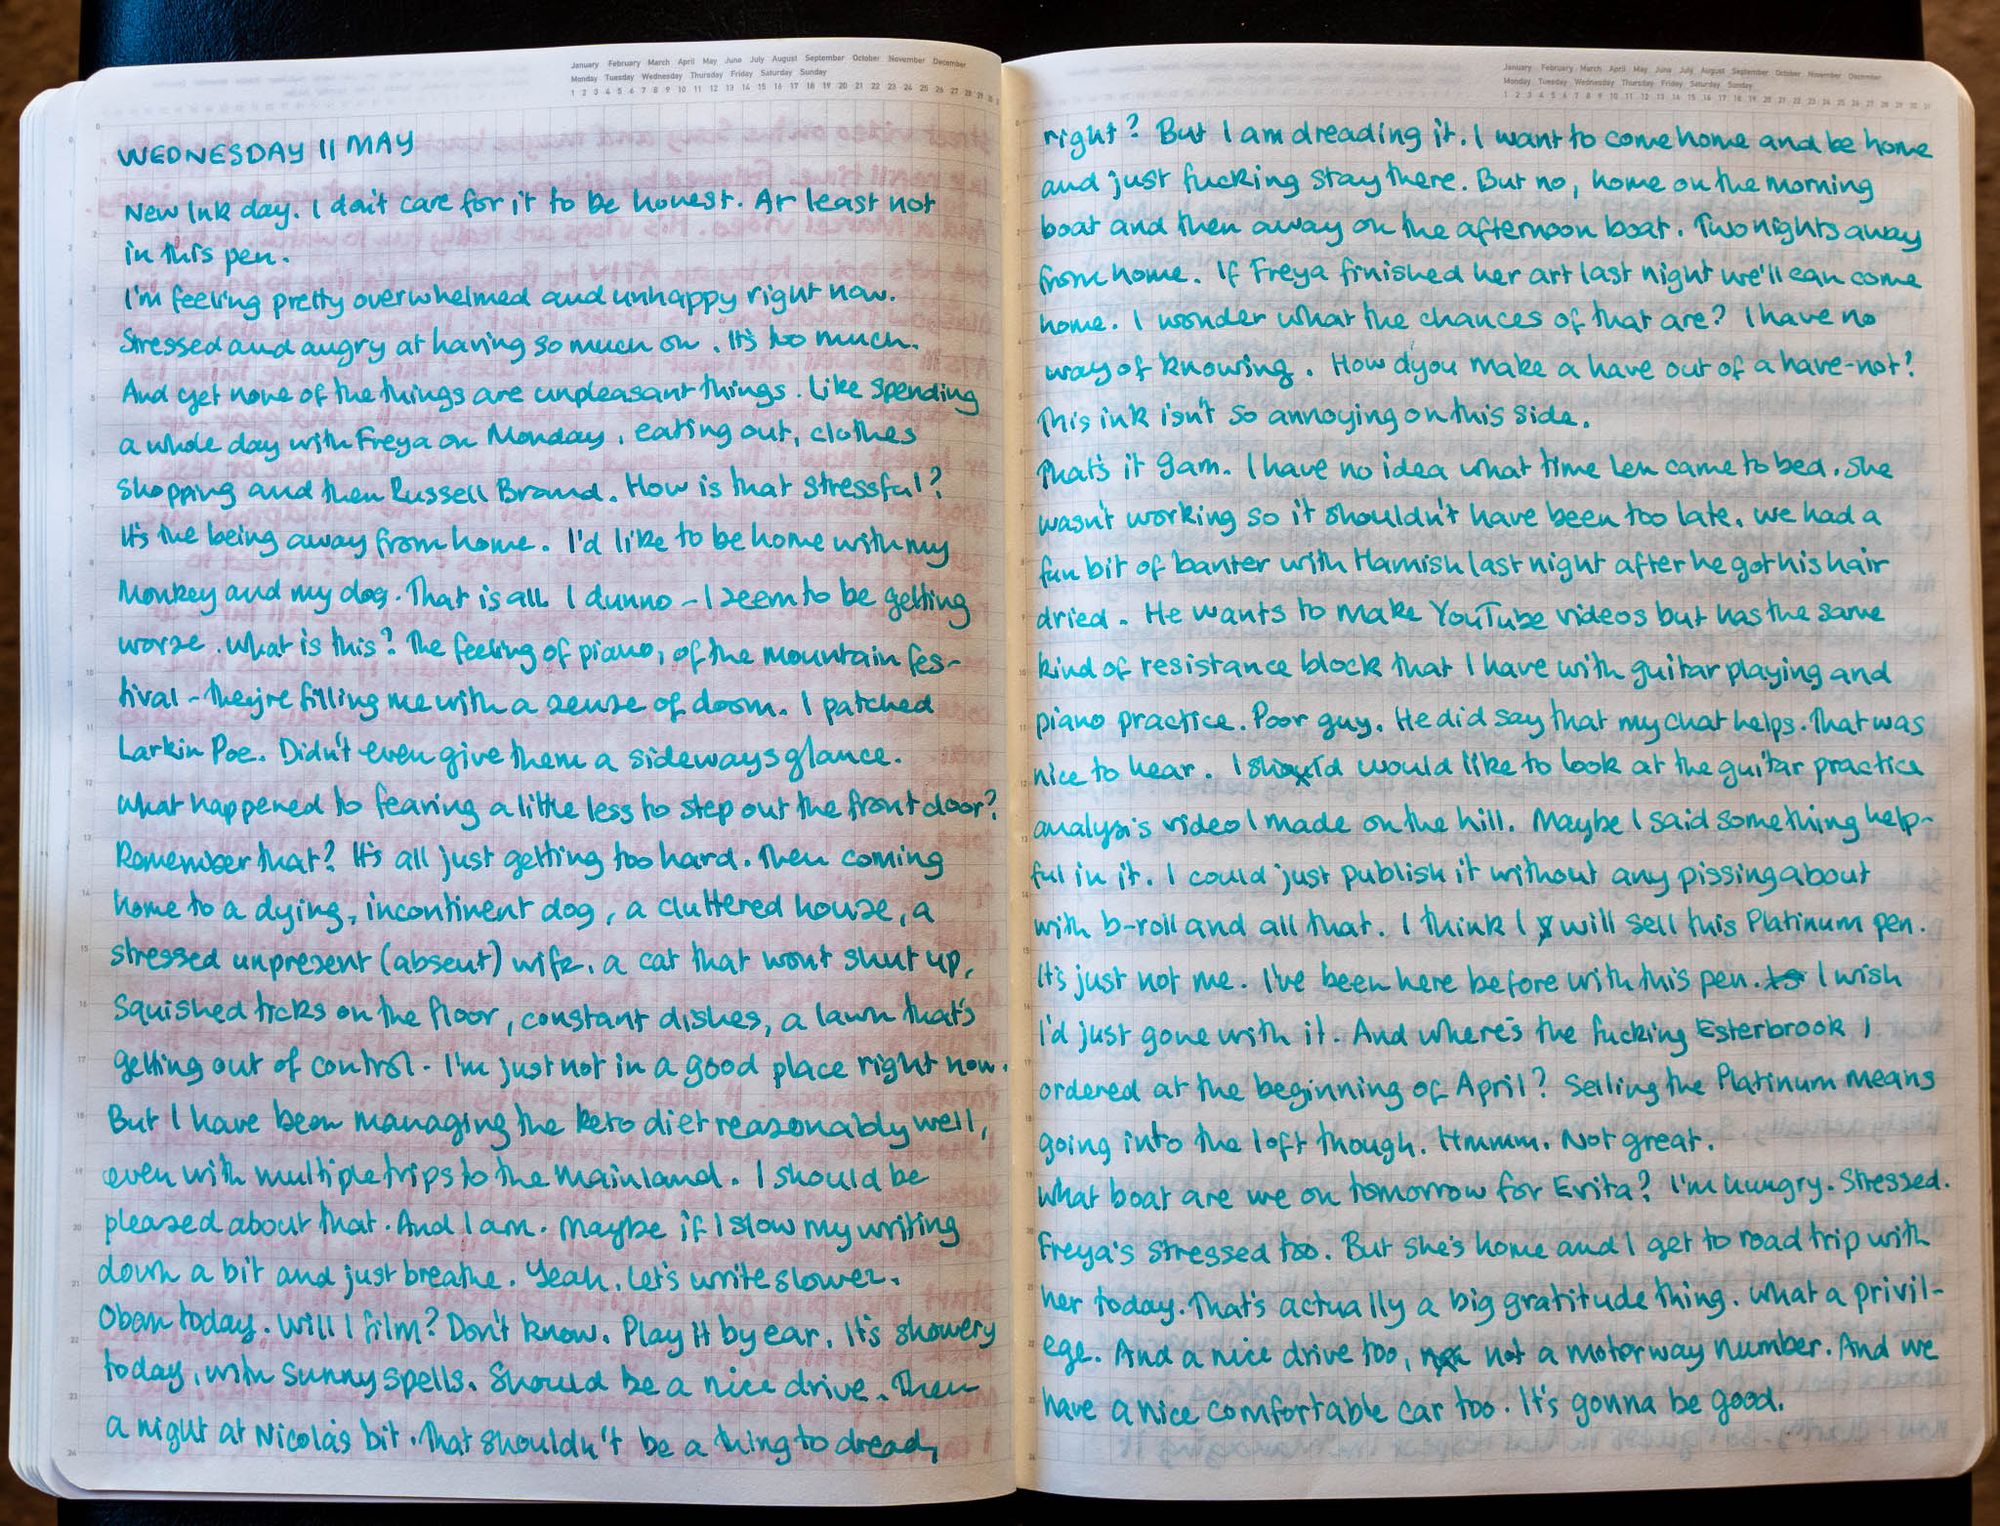 January February March April May June July August September October November December
Monday Tuesday Wednesday Thursday Friday Saturday Sunday
1 2 3 4 5 6 7 8 9 10 11 12 13 14 15 16 17 18 19 20 21 22 23 24 25 26 27 28 29 30 31
WEDNESDAY 11 MAY
New Ink day. I don't care for it to be honest. At least not
in this pen.
I'm feeling pretty overwhelmed and unhappy right now.
Stressed and angry at having so much on. It's too much.
And yet none of the things are unpleasant things. Like spending
a whole day with Freya on Monday, eating out, clothes
shopping and then Russell Brand. How is that stressful?
It's the being away from home. I'd like to be home with my
Monkey and my dog. That is all. I dunno - I seem to be getting
worse. What is this? The feeling of piano, of the mountain fes-
tival - they're filling me with a sense of doom. I patched
Larkin Poe. Didn't even give them a sideways glance.
What happened to fearing a little less to step out the front door?
Remember that? It's all just getting too hard. Then coming
home to a dying, incontinent dog, a cluttered house, a
stressed unpresent (absent) wife, a cat that wont shut up,
squished ticks on the floor, constant dishes, a lawn that's
getting out of control. I'm just not in a good place right now.
But I have been managing the keto diet reasonably well,
even with multiple trips to the mainland. I should be
pleased about that. And I am. Maybe if I slow my writing
down a bit and just breathe. Yeah. Let's write slower.
Oban today. Will I film? Don't know. Play it by ear. It's showery
today, with sunny spells. Should be a nice drive. Then
a night at Nicola's bit. That shouldn't be a thing to dread,
January February March April May June July August September October November December
Monday Tuesday Wednesday Thursday Friday Saturday Sunday
1 2 3 4 5 6 7 8 9 10 11 12 13 14 15 16 17 18 19 20 21 22 23 24 25 26 27 28 29 30 31
right? But I am dreading it. I want to come home and be home
and just fucking stay there. But no, home on the morning
boat and then away on the afternoon boat. Two nights away
from home. If Freya finished her art last night we'll can come
home. I wonder what the chances of that are? I have no
way of knowing. How d'you make a have out of a have-not?
This ink isn't so annoying on this side.
That's it 9am. I have no idea what time Len came to bed. She
wasn't working so it shouldn't have been too late. We had a
fun bit of banter with Hamish last night after he got his hair
dried. He wants to make YouTube videos but has the same
kind of resistance block that I have with guitar playing and
piano practice. Poor guy. He did say that my chat helps. That was
nice to hear. I should would like to look at the guitar practice
analysis video I made on the hill. Maybe I said something help-
ful in it. I could just publish it without any pissing about
with b-roll and all that. I think I will sell this Platinum pen.
It's just not me. I've been here before with this pen. I wish
I'd just gone with it. And where's the fucking Esterbrook I
ordered at the beginning of April? Selling the Platinum means
going into the loft though. Hmmm. Not great.
What boat are we on tomorrow for Evita? I'm hungry. Stressed.
Freya's stressed too. But she's home and I get to road trip with
her today. That's actually a big gratitude thing. What a privil-
ege. And a nice drive too, not a motorway number. And we
have a nice comfortable car too. It's gonna be good.